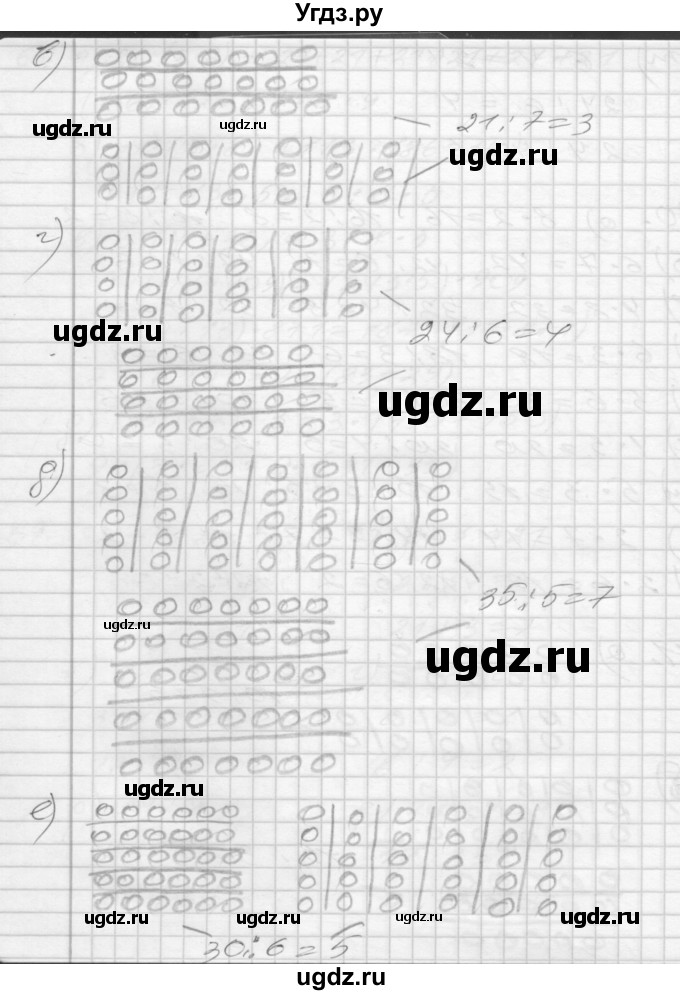 Угдз.ру
б)
ugdz.ru
ugdz.ru
21:7=3
ugdz.ru
г)
ugdz.ru
24:6=4
ugdz.ru
д)
35:5=7
ugdz.ru
ugdz.ru
ugdz.ru
е)
ugdz.ru
ugdz.ru
ugdz.ru
ugdz.ru
30:6=5
ugdz.ru